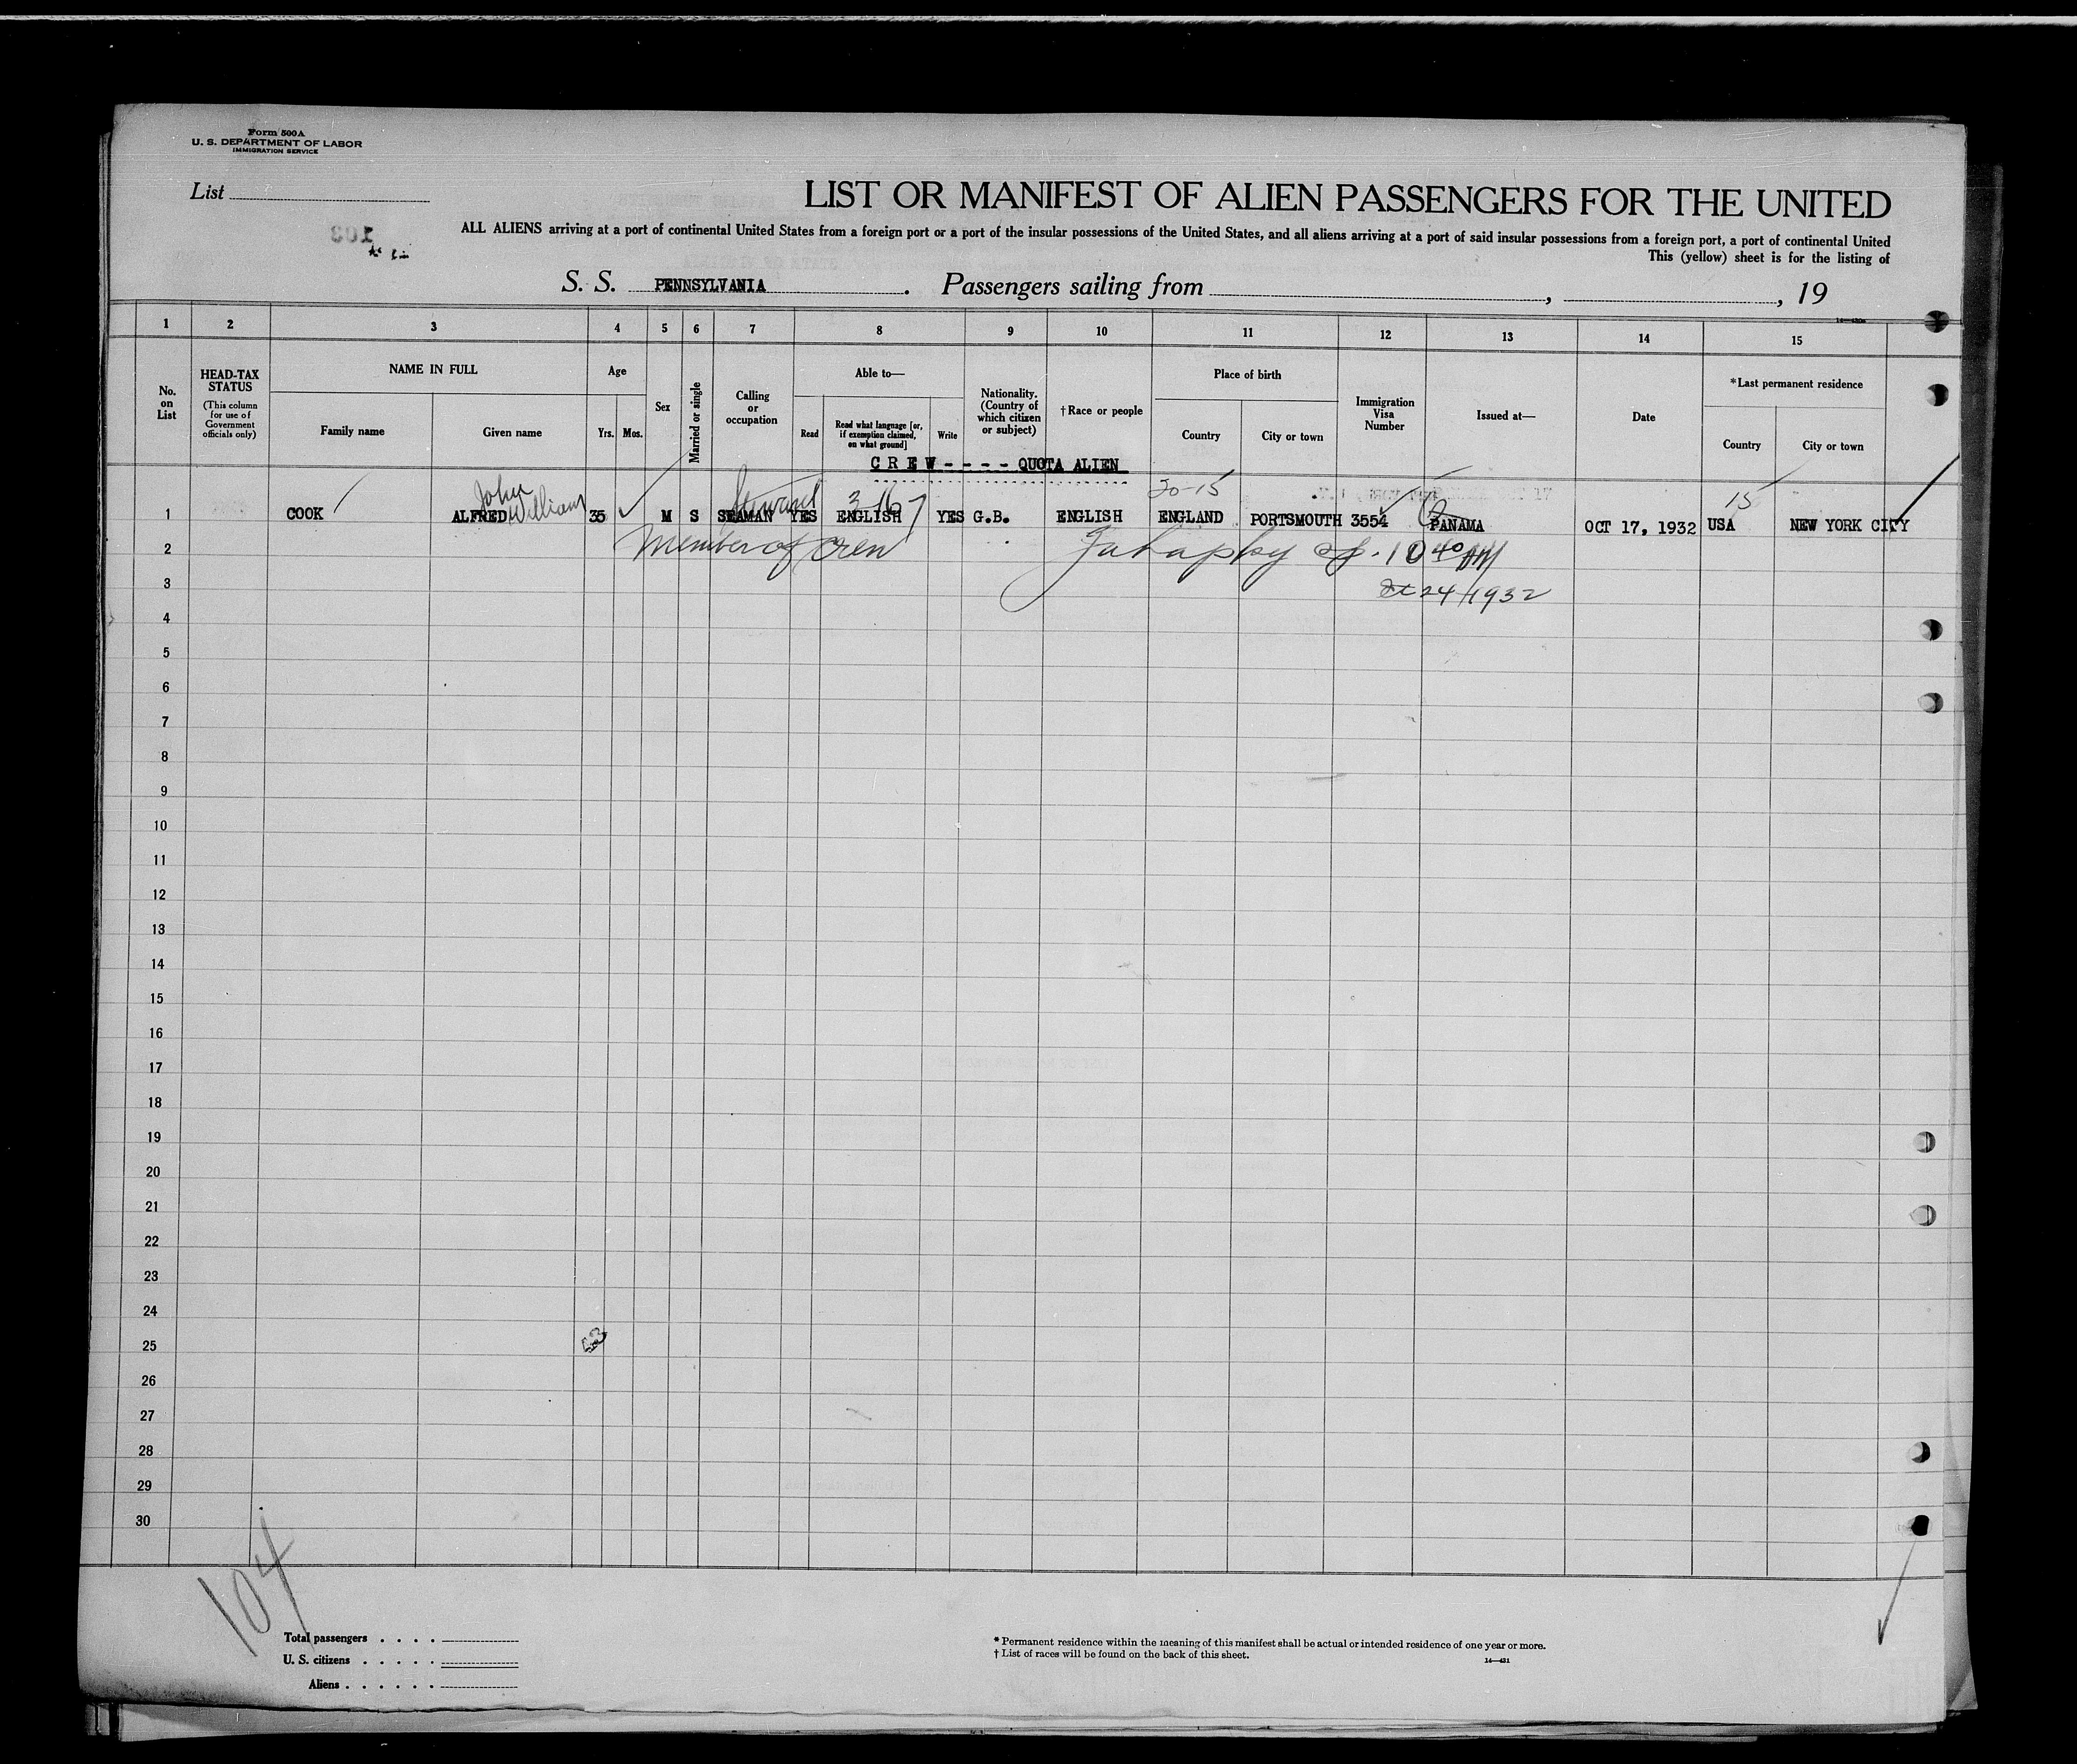 Form 500A
U. S. DEPARTMENT OF LABOR
IMMIGRATION SERVICE
List
LIST OR MANIFEST OF ALIEN PASSENGERS FOR THE UNITED
ALL ALIENS arriving at a port of continental United States from a foreign port or a port of the insular possessions of the United States, and all aliens arriving at a port of said insular possessions from a foreign port, a port of continental United
This (yellow) sheet is for the listing of
S. S. PENNSYLVANIA . Passengers sailing from , , 19
1 2 3 4 5 6 7 8 9 10 11 12 13 14 15
No. on List
HEAD-TAX STATUS
(This column for use of Government officials only)
NAME IN FULL
Family name Given name
Age
Yrs. Mos.
Sex
Married or single
Calling or occupation
Able to—
Read
Read what language [or, if exemption claimed, on what ground]
Write
Nationality. (Country of which citizen or subject)
† Race or people
Place of birth
Country City or town
Immigration Visa Number
Issued at—
Date
*Last permanent residence
Country City or town
C R E W - - - - QUOTA ALIEN
John William Steward 3 167 20-15 15
1 COOK ALFRED 35 M S SEAMAN YES ENGLISH YES G.B. ENGLISH ENGLAND PORTSMOUTH 3554 PANAMA OCT 17, 1932 USA NEW YORK CITY
2 Member of Crew 10 40 AM
3 Oct 24/1932
4
5
6
7
8
9
10
11
12
13
14
15
16
17
18
19
20
21
22
23
24
25
26
27
28
29
30
104
Total passengers . . . .
U. S. citizens . . . . .
Aliens . . . . . .
* Permanent residence within the meaning of this manifest shall be actual or intended residence of one year or more.
† List of races will be found on the back of this sheet.
14—431